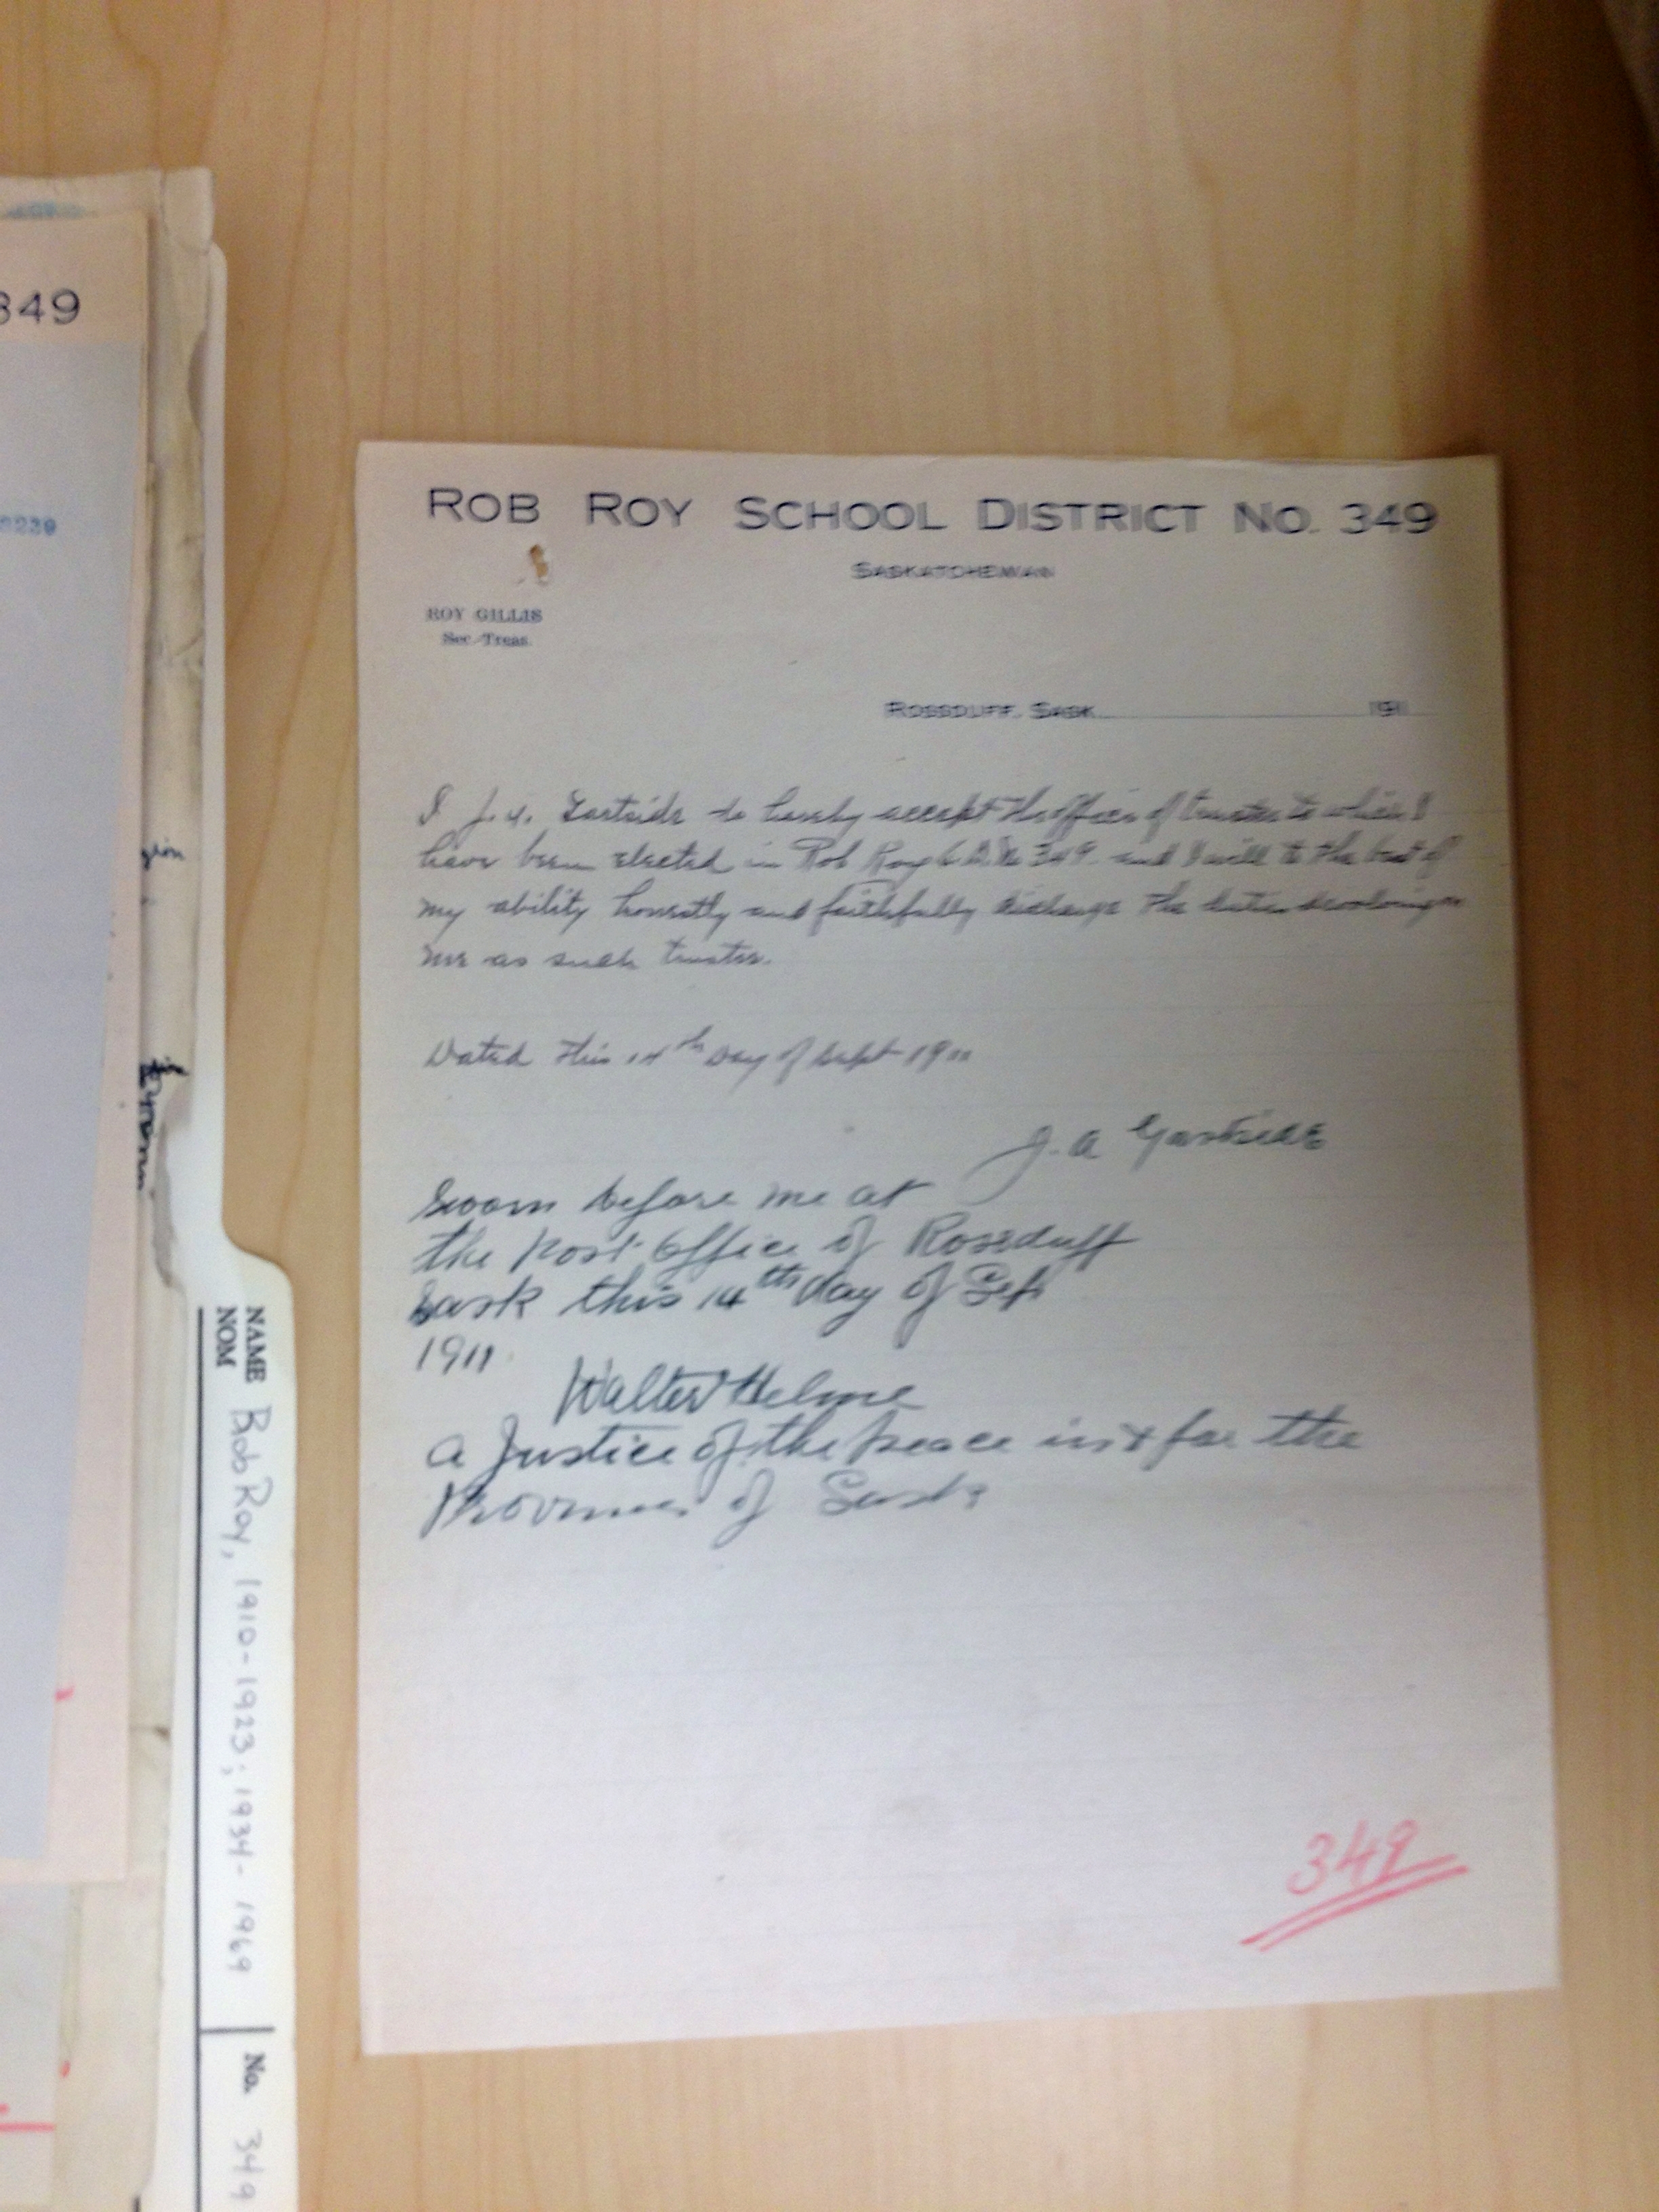 ROB ROY SCHOOL DISTRICT NO. 349
SASKATCHEWAN
ROY GILLIS
Sec.-Treas.
ROSSDUFF, SASK. 191
I J. A. Gartside do hereby accept the office of trustee to which I
have been elected in Rob Roy S.D. No 349 and I will to the best of
my ability honestly and faithfully discharge the duties devolving on
me as such trustee.
Dated this 14th Day of Sept 1911
J. A Gartside
Sworn before me at
the Post Office of Rossduff
Sask this 14th day of Sept
1911
Walter Helme
a Justice of the peace in & for the
Province of Sask
349
349
NAME Rob Roy, 1910-1923; 1934-1969 No. 349
NOM